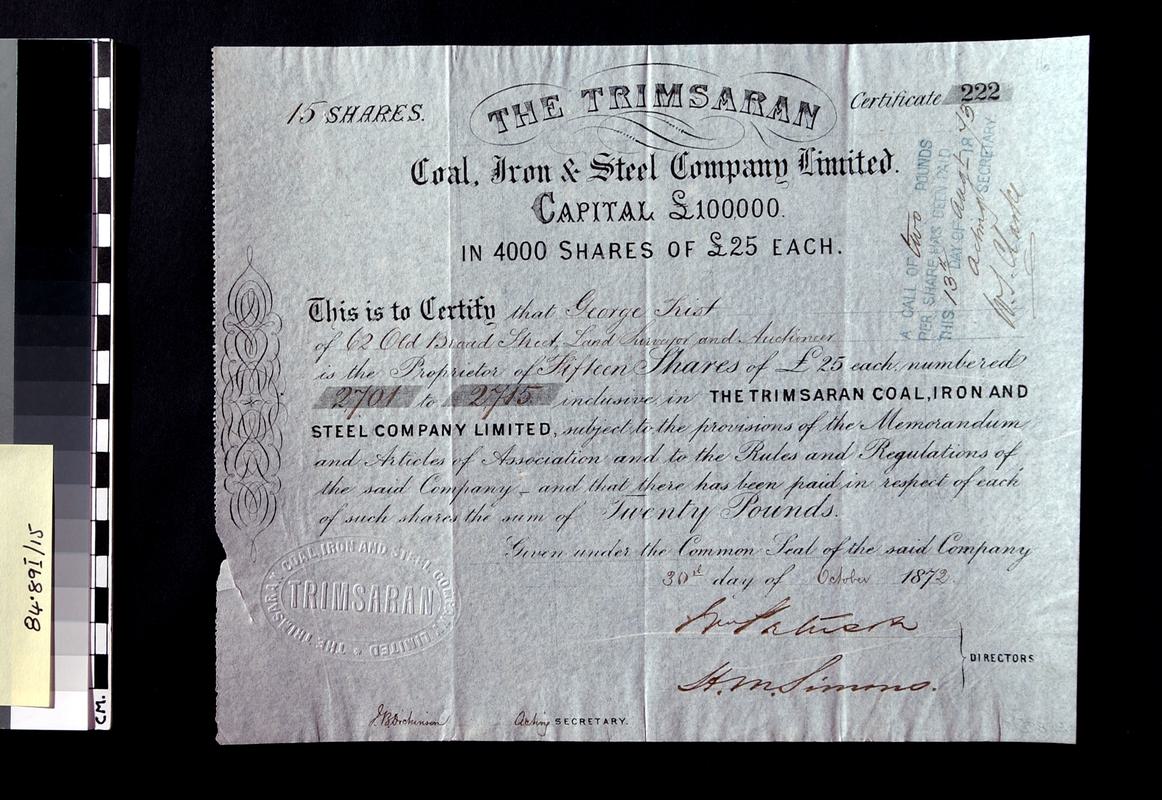 15 SHARES.
THE TRIMSARAN
Certificate 222
Coal, Iron & Steel Company Limited.
CAPITAL £100000.
IN 4000 SHARES OF £25 EACH.
This is to Certify that George Trist
of 62 Old Broad Street, Land Surveyor and Auctioneer
is the Proprietor of Fifteen Shares of £25 each, numbered
2701 to 2715 inclusive in THE TRIMSARAN COAL, IRON AND
STEEL COMPANY LIMITED, subject to the provisions of the Memorandum
and Articles of Association and to the Rules and Regulations of
the said Company - and that there has been paid in respect of each
of such shares the sum of Twenty Pounds.
Given under the Common Seal of the said Company
30th day of October 1872.
H. M. Simons.
DIRECTORS
Acting SECRETARY.
A CALL OF two POUNDS
PER SHARE HAS BEEN PAID
THIS 13th DAY OF Augt 1873
acting SECRETARY.
THE TRIMSARAN COAL IRON AND STEEL COMPANY LIMITED
TRIMSARAN
84.89I/15
CM.